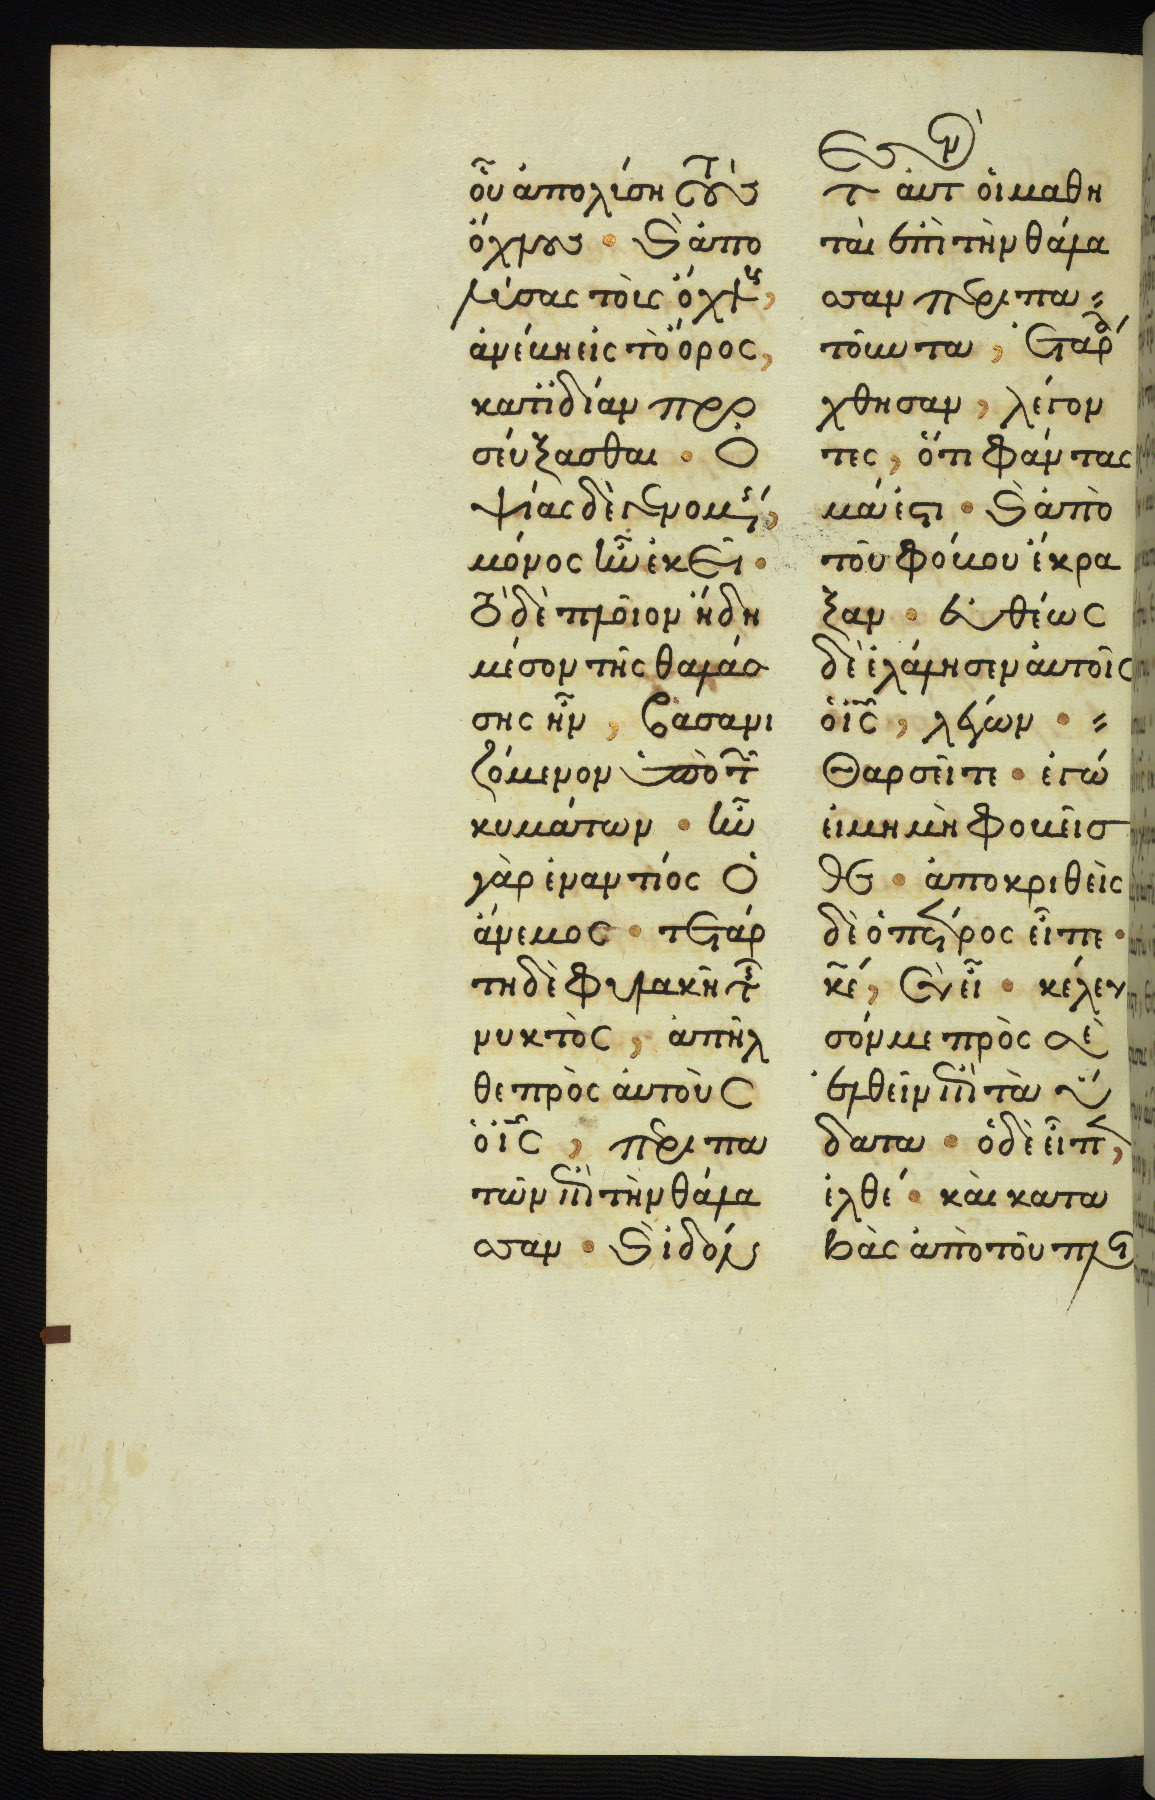 οὗ ἀπολύση τοὺς
ὄχλους · καὶ ἀπο
λύσας τοὺς ὄχλους,
ἀνέβη εἰς τὸ ὄρος,
κατϊδίαν προ
σεύξασθαι · Ὀ
ψίας δὲ γενομένης,
μόνος ἦν ἐκεῖ ·
τὸ δὲ πλοῖον ἤδη
μέσον τῆς θαλάσ
σης ἦν, βασανι
ζόμενον ὑπὸ τῶν
κυμάτων · ἦν
γὰρ ἐναντίος ὁ
ἄνεμος · τετάρ
τη δὲ φυλακῆ τῆς
νυκτὸς, ἀπῆλ
θε πρὸς ἀυτοὺς
ὁ ἰς, περιπα
τῶν ἐπὶ τὴν θάλα
σσαν · καὶ ἰδόν
τες αὐτὸν
οἱ μαθη
ταὶ ἐπὶ τὴν θάλα
σσαν περιπα=
τοῦντα, ἐταρά
χθησαν, λέγον
τες, ὅτι φάντασ
μά ἐστι · καὶ ἀπὸ
τοῦ φόβου ἔκρα
ξαν · εὐθέως
δὲ ἐλάλησεν ἀυτοῖς
ὁ ἰς, λέγων · =
Θαρσεῖτε · ἐγώ
εἰμη μὴ φοβεῖσ
θε · ἀποκριθεὶς
δὲ ὁ πέτρος εἶπε ·
κε, εἰ σὺ εἶ · κέλευ
σόν με πρὸς σὲ
ἐλθεῖν ἐπὶ τὰ ὕ
δατα · ὁ δὲ εἶπεν,
ἐλθέ · καὶ κατα
βὰς ἀπὸ τοῦ πλοί